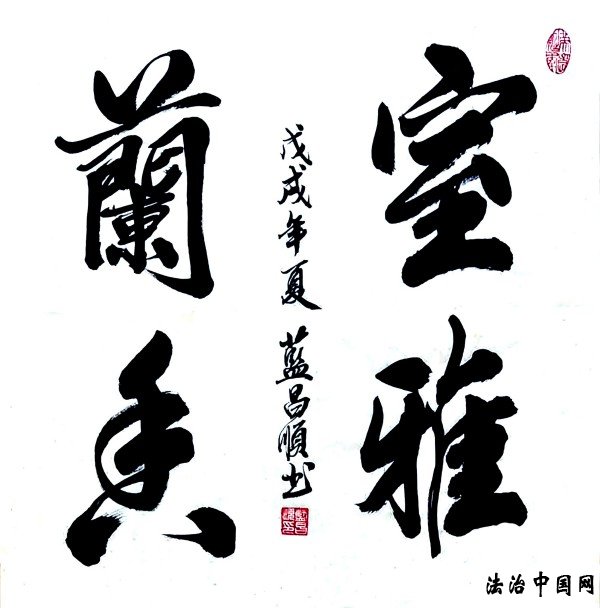 室雅
蘭香
戊戌年夏 藍昌順书
法治中国网